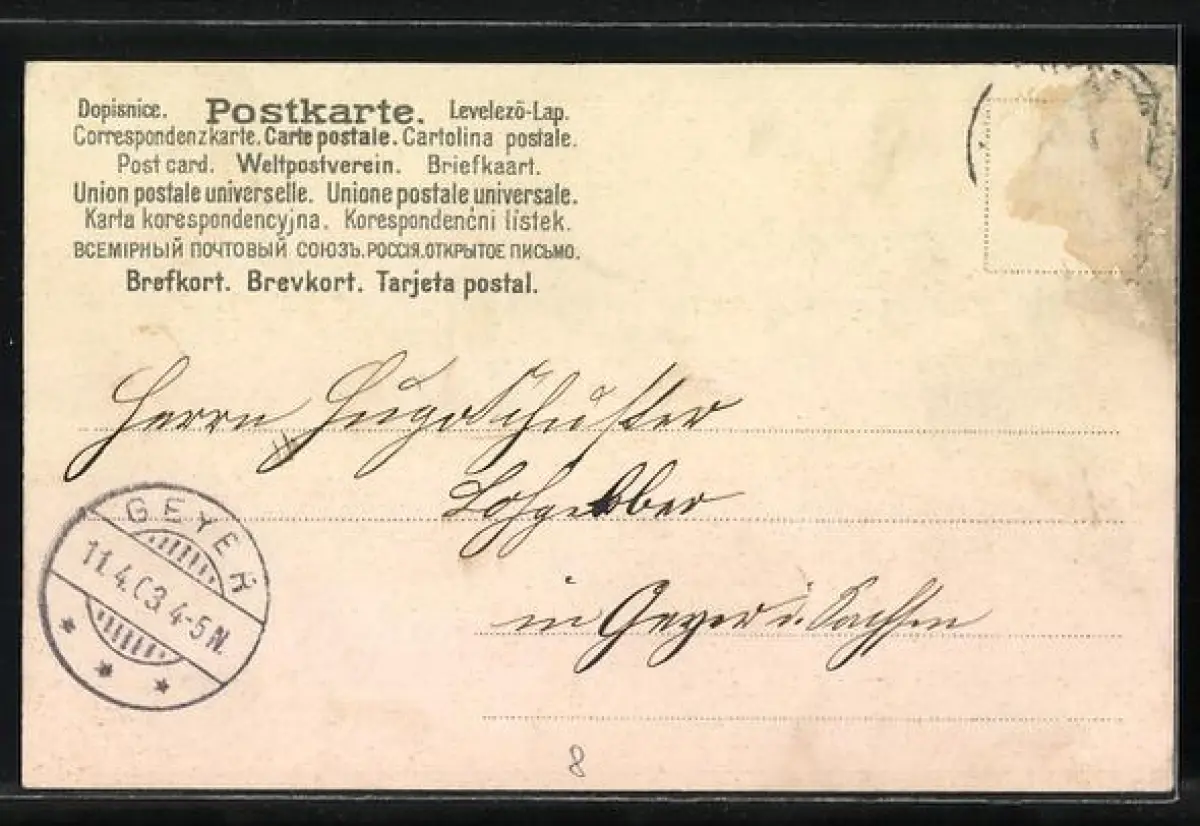 Dopisnice. Postkarte. Levelező-Lap.
Correspondenzkarte. Carte postale. Cartolina postale.
Post card. Weltpostverein. Briefkaart.
Union postale universelle. Unione postale universale.
Karta korespondencyjna. Korespondenčni listek.
ВСЕМІРНЫЙ ПОЧТОВЫЙ СОЮЗЪ. РОССІЯ. ОТКРЫТОЕ ПИСЬМО.
Brefkort. Brevkort. Tarjeta postal.
Herrn Hugo Schuster
Lohgerber
in Geyer i. Sachsen
GEYER
11.4.03 4-5N.
8